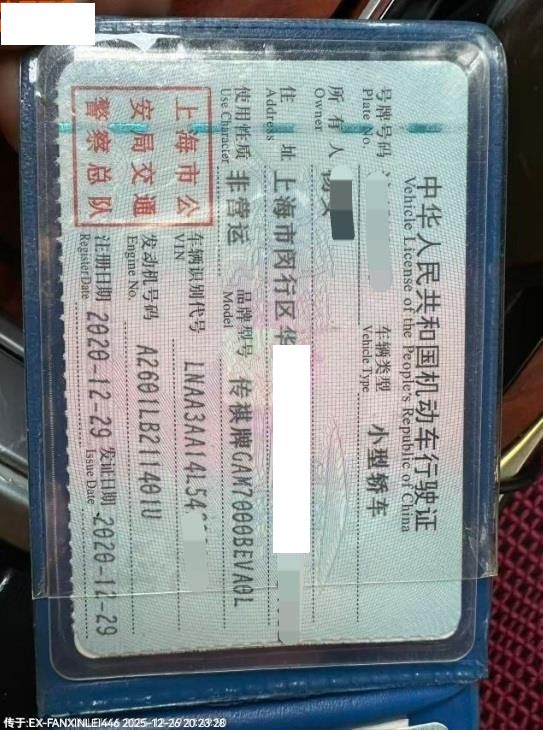 中华人民共和国机动车行驶证
Vehicle License of the People's Republic of China
号牌号码
Plate No.
车辆类型 小型轿车
Vehicle Type
所有人
Owner
住址 上海市闵行区华
Address
使用性质 非营运
Use Character
品牌型号 传祺牌GAM7000BEVA0L
Model
车辆识别代号 LNAA3AA14L54
VIN
发动机号码 A2601LB211401U
Engine No.
注册日期 2020-12-29
Register Date
发证日期 2020-12-29
Issue Date
上海市公
安局交通
警察总队
传于:EX-FANXINLEI446 2025-12-26 20:23:28